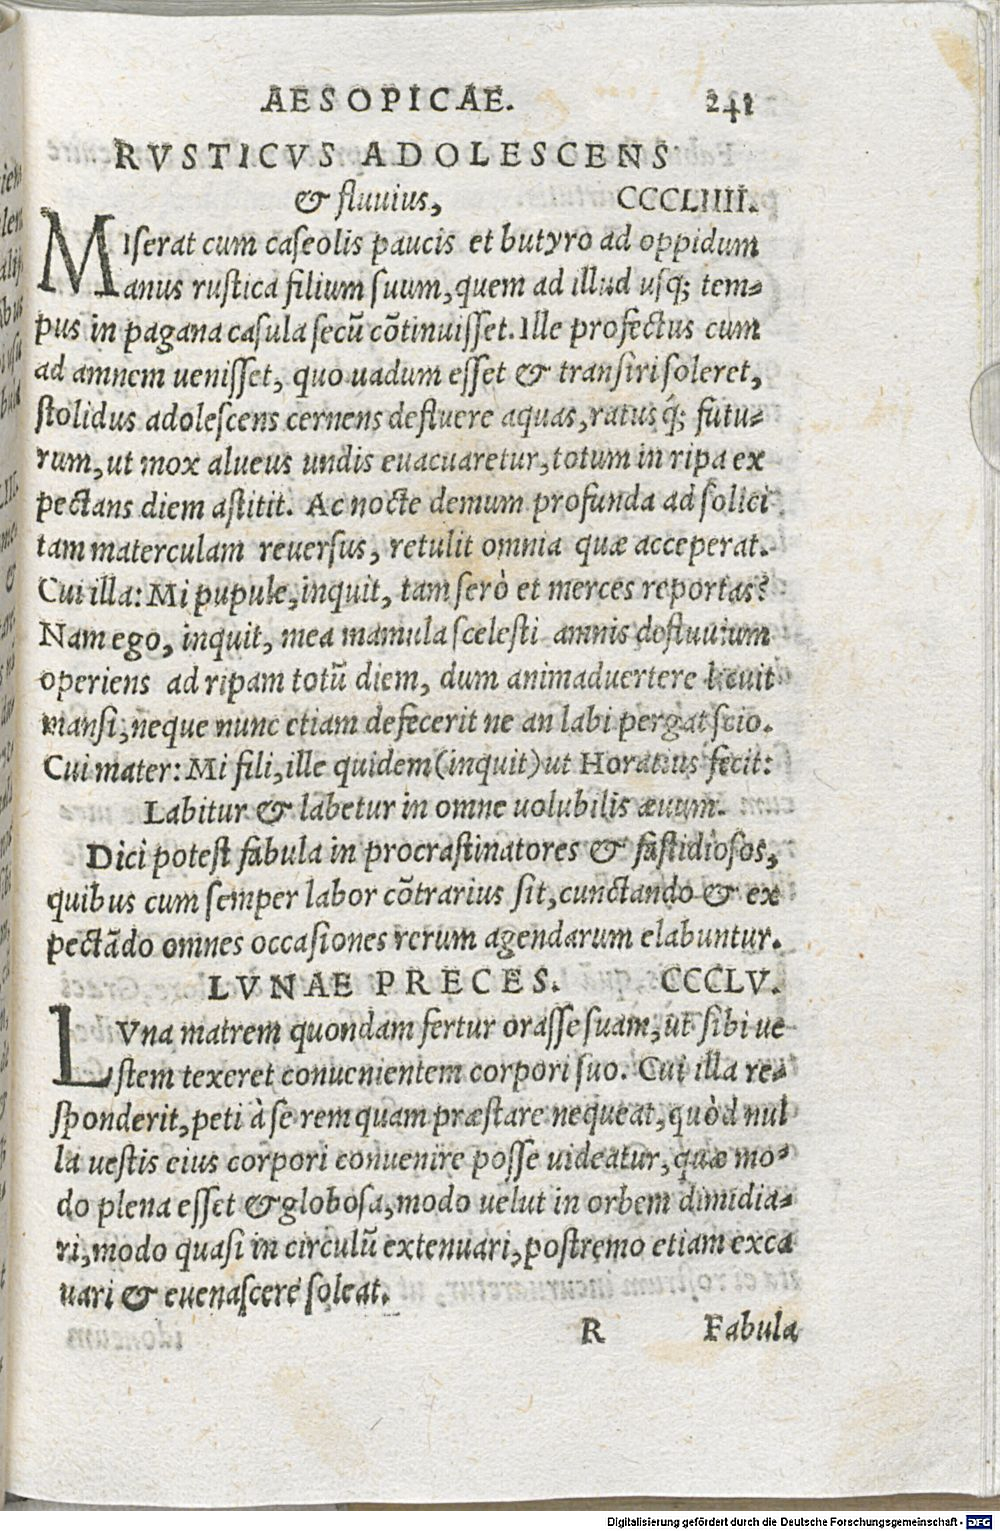 AESOPICAE. 241
RVSTICVS ADOLESCENS
& fluuius, CCCLIIII.
MIserat cum caseolis paucis et butyro ad oppidum
anus rustica filium suum, quem ad illud usq; tem-
pus in pagana casula secũ cõtinuisset. Ille profectus cum
ad amnem uenisset, quo uadum esset & transiri soleret,
stolidus adolescens cernens defluere aquas, ratusq́; futu-
rum, ut mox alueus undis euacuaretur, totum in ripa ex
pectans diem astitit. Ac nocte demum profunda ad solici
tam materculam reuersus, retulit omnia quæ acceperat.
Cui illa: Mi pupule, inquit, tam serò et merces reportas?
Nam ego, inquit, mea mamula scelesti amnis defluuium
operiens ad ripam totũ diem, dum animaduertere licuit
mansi, neque nunc etiam defecerit ne an labi pergat scio.
Cui mater: Mi fili, ille quidem (inquit) ut Horatius fecit:
Labitur & labetur in omne uolubilis æuum.
Dici potest fabula in procrastinatores & fastidiosos,
quibus cum semper labor cõtrarius sit, cunctando & ex
pectãdo omnes occasiones rerum agendarum elabuntur.
LVNAE PRECES. CCCLV.
LVna matrem quondam fertur orasse suam, ut sibi ue
stem texeret conuenientem corpori suo. Cui illa re-
sponderit, peti à se rem quam præstare nequeat, quòd nul
la uestis eius corpori conuenire posse uideatur, quæ mo-
do plena esset & globosa, modo uelut in orbem dimidia-
ri, modo quasi in circulũ extenuari, postremo etiam exca
uari & euenascere soleat.
R Fabula
Digitalisierung gefördert durch die Deutsche Forschungsgemeinschaft - DFG